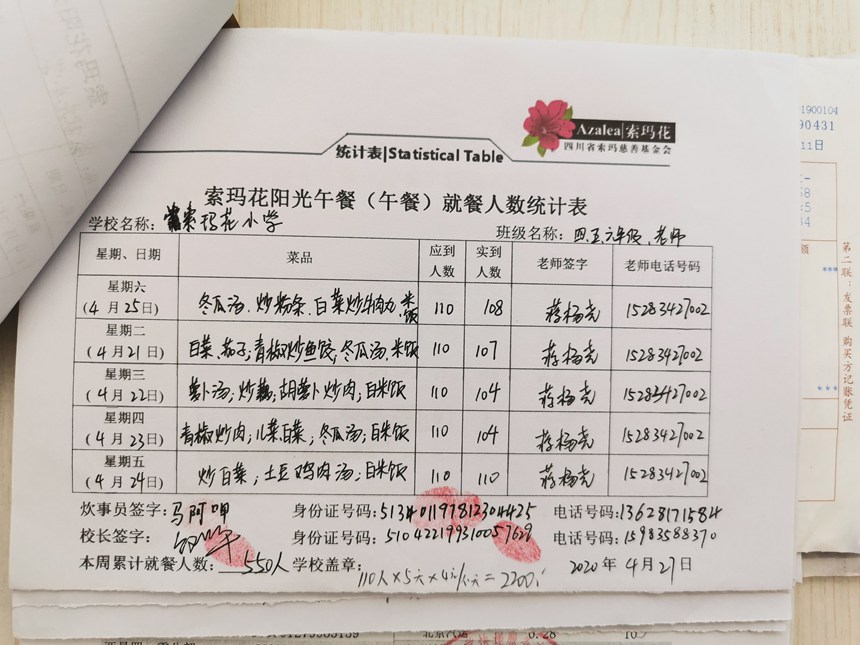 Azalea|索玛花
四川省索玛慈善基金会
统计表|Statistical Table
索玛花阳光午餐（午餐）就餐人数统计表
学校名称：索玛花小学 班级名称：四五六年级、老师
星期、日期 菜品 应到人数 实到人数 老师签字 老师电话号码
星期六（4月25日） 冬瓜汤、炒粉条、白菜炒牛肉丸 米饭 110 108 蒋杨尧 15283427002
星期二（4月21日） 白菜、茄子；青椒炒鱼饺；冬瓜汤、米饭 110 107 蒋杨尧 15283427002
星期三（4月22日） 萝卜汤；炒藕；胡萝卜炒肉；白米饭 110 104 蒋杨尧 15283427002
星期四（4月23日） 青椒炒肉；儿菜白菜；冬瓜汤；白米饭 110 104 蒋杨尧 15283427002
星期五（4月24日） 炒白菜；土豆鸡肉汤；白米饭 110 110 蒋杨尧 15283427002
炊事员签字：马阿呷 身份证号码： 电话号码：13628171584
校长签字： 身份证号码： 电话号码：15983588370
本周累计就餐人数：550人 学校盖章： 2020年4月27日
110人×5天×4元/人天=2200
1900104
90431
11日
第二联：发票联 购买方记账凭证